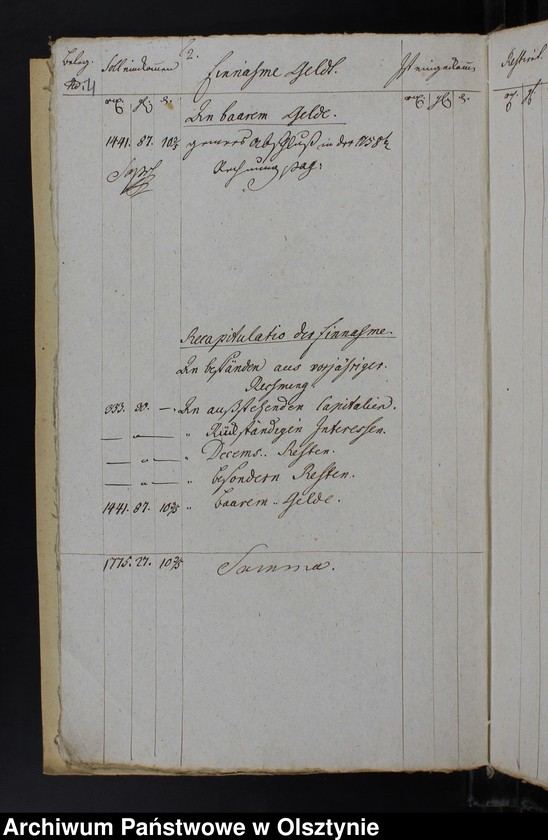 2.
Beleg. Soll einkommen Einnahme Geldt. Ist eingekommen Restirt.
No:
An baarem Gelde.
1441. 87. 10 2/5 Abschluß in der
Rechnung pag:
Recapitulatio der Einnahme.
An Beständen aus vorjähriger
Rechnung
333. 30. —. An außstehenden Capitalien.
— " — " Rückständigen Interessen.
— " — " Decems. Resten.
— " — " besondern Resten.
1441. 87. 10 2/5 " baarem Gelde.
1775. 27. 10 2/5 Summa.
Archiwum Państwowe w Olsztynie